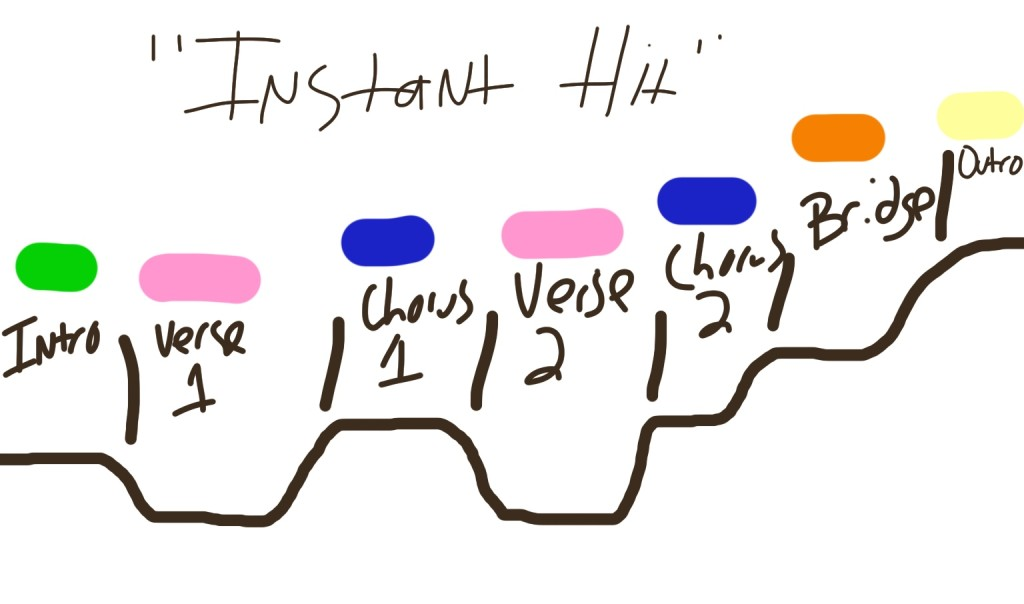 "Instant Hit"
Intro
Verse
1
Chorus
1
Verse
2
Chorus
2
Bridge
Outro